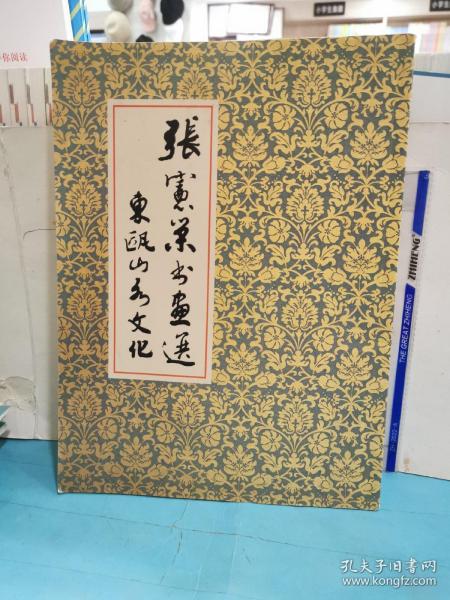 張憲榮书画選
東甌山水文化
你阅读
ZHIHENG
THE GREAT ZHIHENG
孔夫子旧书网
www.kongfz.com